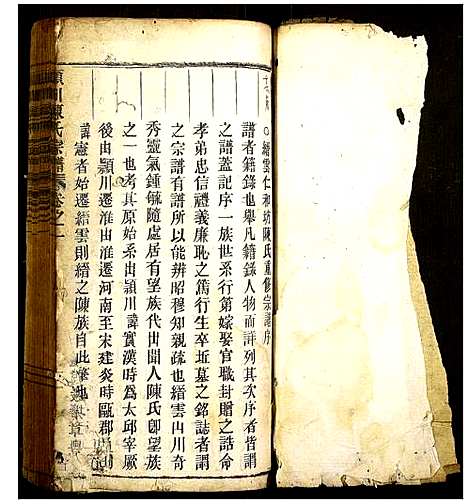 縉雲仁和坊陳氏重修宗譜序
譜者籍錄也舉凡籍錄人物而詳列其次序者皆謂
之譜蓋記序一族世系行第嫁娶官職封贈之誥命
孝弟忠信禮義廉恥之篤行生卒逝墓之銘誌者謂
之宗譜有譜所以能辨昭穆知親疏也縉雲山川奇
秀靈氣鍾毓隨處居有望族代出聞人陳氏卽望族
之一也考其原始系出潁川諱實漢時為太邱宰厥
後由潁川遷淮由淮遷河南至宋建炎時甌郡
諱憲者始遷縉雲則縉之陳族自此肇也
潁川陳氏宗譜卷之一